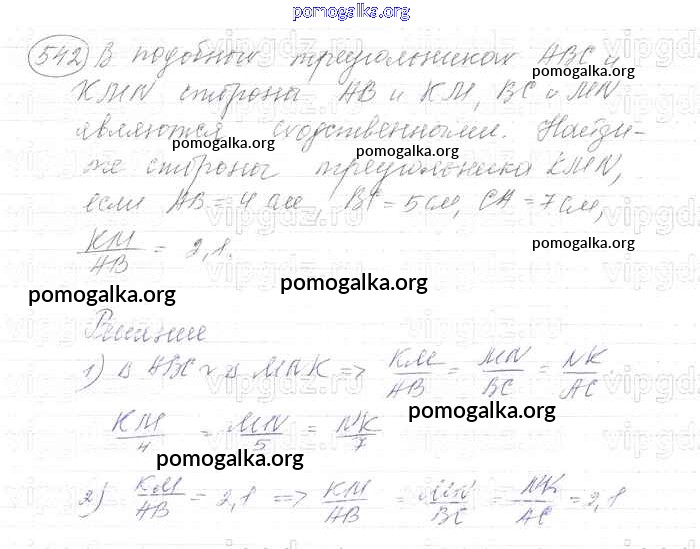 pomogalka.org
542) В подобных треугольниках ABC и
pomogalka.org
KMN стороны AB и KM, BC и MN
являются сходственными. Найди-
pomogalka.org
pomogalka.org
те стороны треугольника KMN,
если AB = 4 см, BC = 5 см, CA = 7 см,
KM/AB = 2,1.
pomogalka.org
pomogalka.org
pomogalka.org
Решение
1) Δ ABC ~ Δ MNK => KM/AB = MN/BC = NK/AC
pomogalka.org
KM/4 = MN/5 = NK/7
pomogalka.org
2) KM/AB = 2,1 => KM/AB = MN/BC = NK/AC = 2,1